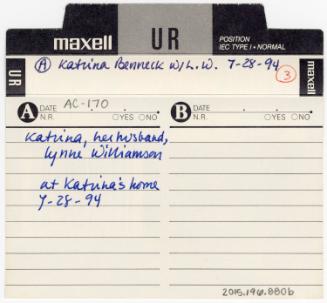 maxell UR POSITION
IEC TYPE I • NORMAL
UR
A Katrina Benneck W/L.W. 7-28-94
3
A DATE AC-170
N.R. ○YES ○NO
B DATE
N.R. ○YES ○NO
Katrina, her husband,
Lynne Williamson
at Katrina's home
7-28-94
2015.196.880b